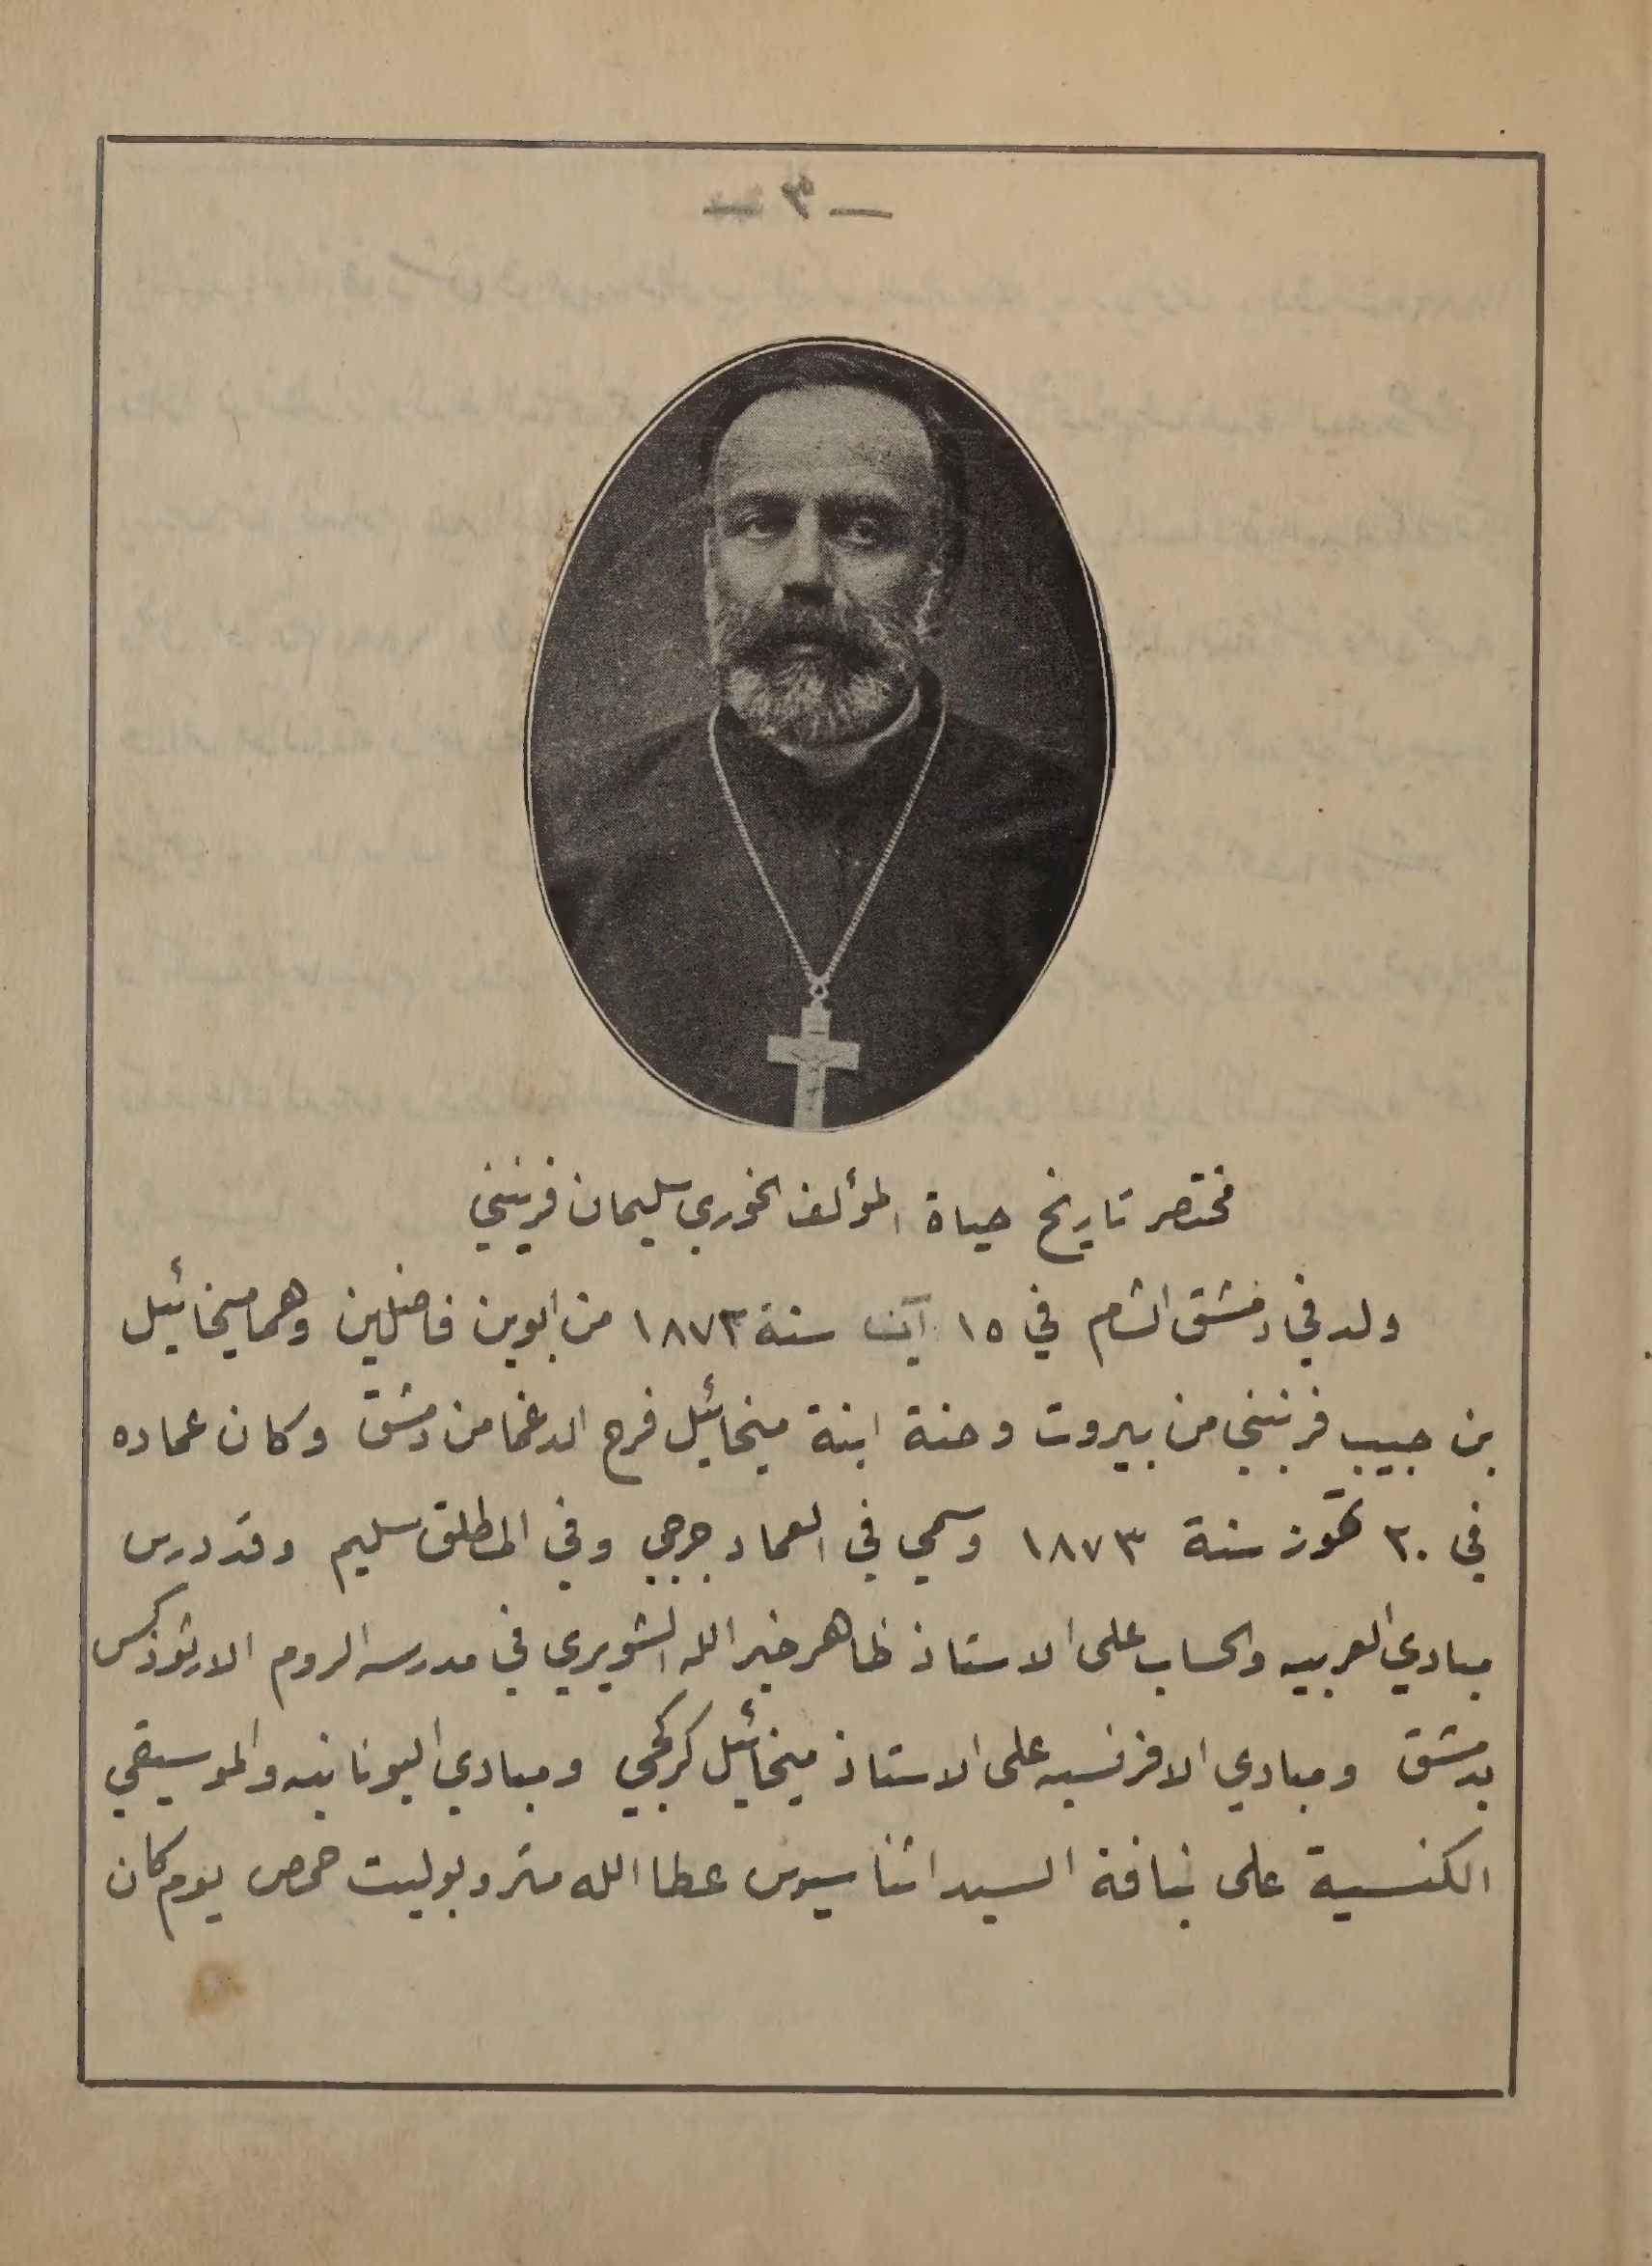 — ٣ —
مختصر تاريخ حياة المؤلف الخوري سليمان فرنيني
ولد في دمشق الشام في ١٥ آب سنة ١٨٧٣ من ابوين فاضلين وهما ميخائيل
بن حبيب فرنيني من بيروت وحنة ابنة ميخائيل فرح الدغما من دمشق وكان عماده
في ٣٠ تموز سنة ١٨٧٣ وسمي في العماد جرجي وفي المطلق سليم وقد درس
مبادي العربيه والحساب على الاستاذ ظاهر خير الله الشويري في مدرسه الروم الارثوذكس
بدمشق ومبادي الافرنسيه على الاستاذ ميخائيل كركجي ومبادي اليونانيه والموسيقي
الكنسية على نيافة السيد اثناسيوس عطا الله متروبوليت حمص يوم كان